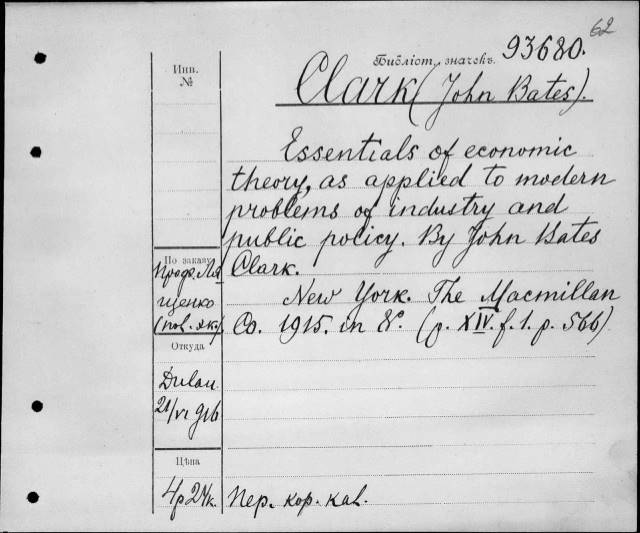 62
Библіот. значекъ. 93680.
Clark (John Bates).
Инв.
№
Essentials of economic
theory, as applied to modern
problems of industry and
public policy. By John Bates
Clark.
New York. The Macmillan
Co. 1915. in 8º. (p. XIV. f. 1. p. 566)
По заказу
Проф. Ля
щенко
(пов. эк)
Откуда
Dulau
21/VI 916
Цѣна
4р 24к.
Пер. кор. каl.